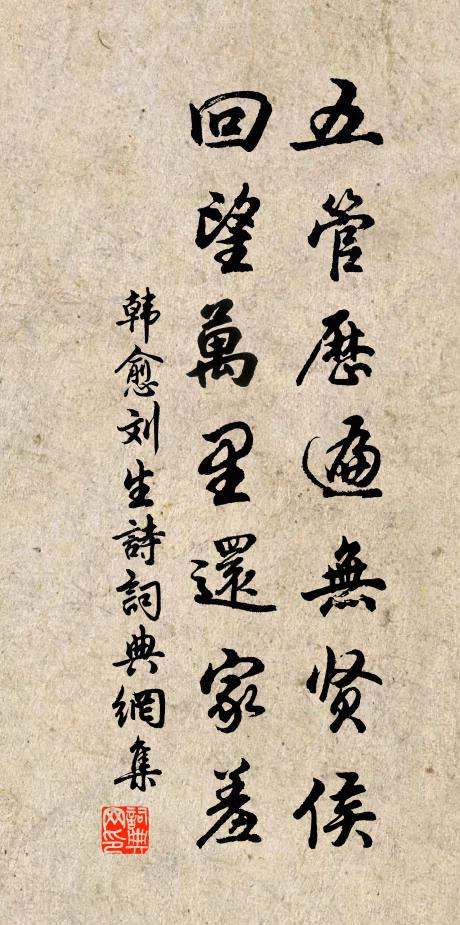 五管歷遍無贤侯
回望萬里還家羞
韩愈刘生詩詞典網集
詞典
网印